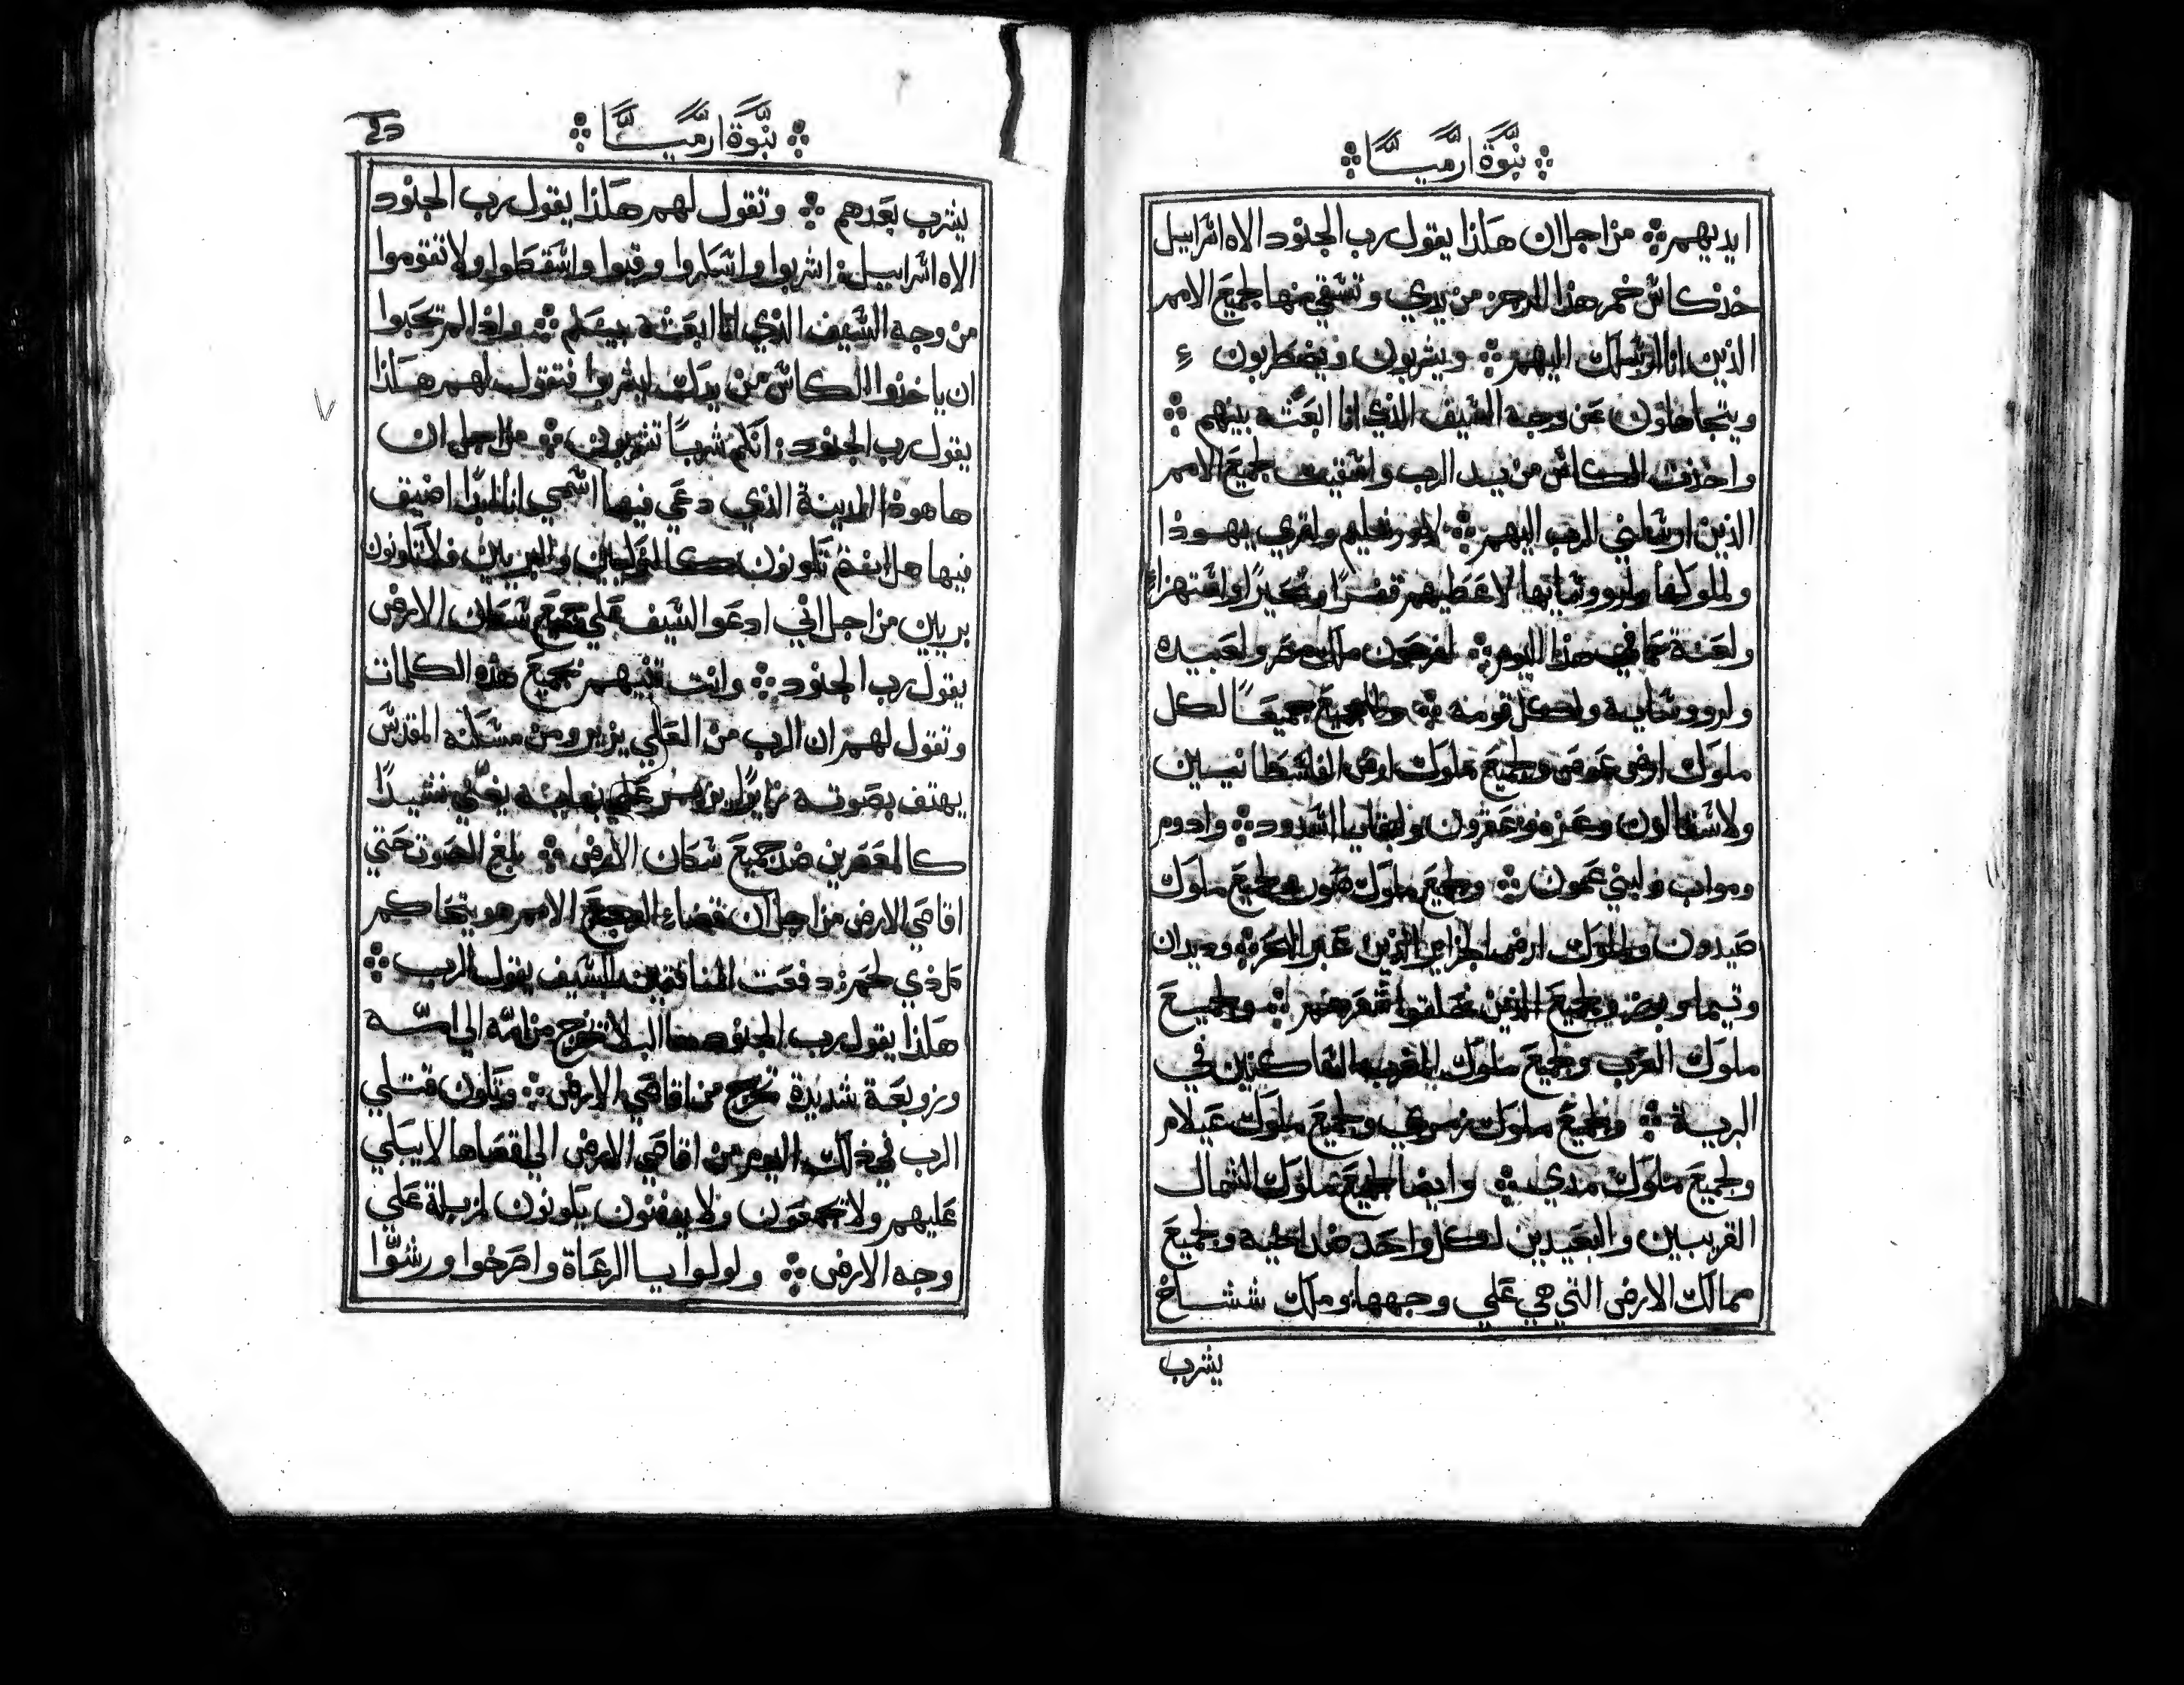 نبوة ارميا
ايديهم من اجل ان هكذا يقول رب الجنود الاه اسراييل
خذ كاس خمر هذا الرجز من يدي وتسقي منها لجميع الامم
الذين انا ارسلك اليهم ويشربون ويضطربون
ويتجاهلون عن وجه السيف الذي انا ابعثه بينهم
واخذت الكاس من يد الرب واسقيت لجميع الامم
الذين ارسلني الرب اليهم لاورشليم ولقري يهوذا
ولملوكها ولرووساتها لاعطيهم قفرا وتحيرا واستهزاء
ولعنة كما في هذا اليوم لفرعون ملك مصر ولعبيده
ولرووسايه ولكل قومه ولجميع جميعا لكل
ملوك ارض عوص ولجميع ملوك ارض الفلسطانيين
ولاسقالون وعزه وعقرون ولبقايا اشدود وادوم
ومواب ولبني عمون ولجميع ملوك صور ولجميع ملوك
صيدون ولملوك ارض الجزاير الذين عبر البحر وديدان
وتيما وبوز ولجميع الذين محلقوا شعرهم ولجميع
ملوك العرب ولجميع ملوك المغرب الساكنين في
البرية ولجميع ملوك زمري ولجميع ملوك عيلام
ولجميع ملوك مدي وايضا لجميع ملوك الشمال
القريبين والبعيدين لكل واحد ضد اخيه ولجميع
ممالك الارض التي هي علي وجهها وملك ششاخ
يشرب
نبوة ارميا
يشرب بعدهم وتقول لهم هكذا يقول رب الجنود
الاه اسراييل اشربوا واسكروا وقيوا واسقطوا ولا تقوموا
من وجه السيف الذي انا ابعثه بينكم واذا لم تحبوا
ان ياخذوا الكاس من يدك ليشربوا فتقول لهم هكذا
يقول رب الجنود انكم شربا تشربون من اجل ان
ها هوذا المدينة الذي دعي فيها اسمي انا ابتدا اضيق
فيها هل انتم تكونون كالزكيين والبريين فلا تكونون
بريين من اجل اني ادعو السيف علي جميع سكان الارض
يقول رب الجنود وانت تنبيهم بجميع هذه الكلمات
وتقول لهم ان الرب من العلي يزير ومن مسكنه المقدس
يهتف بصوته زايرا يزمر علي بهايه يغني نشيدا
كالمعصرين ضد جميع سكان الارض بلغ الصوت حتي
اقاصي الارض من اجل ان قضاء الرب لجميع الامم هو يتحاكم
كل ذي لحم دفعت المنافقين للسيف يقول الرب
هكذا يقول رب الجنود ها البلا تخرج من امة الي امة
وزوبعة شديدة تخرج من اقاصي الارض وتكون قتلي
الرب في ذلك اليوم من اقاصي الارض الي اقصاها لا يبكي
عليهم ولا تجمعون ولا يدفنون يكونون لمزبلة علي
وجه الارض ولولوا يا الرعاة واصرخوا ورشوا